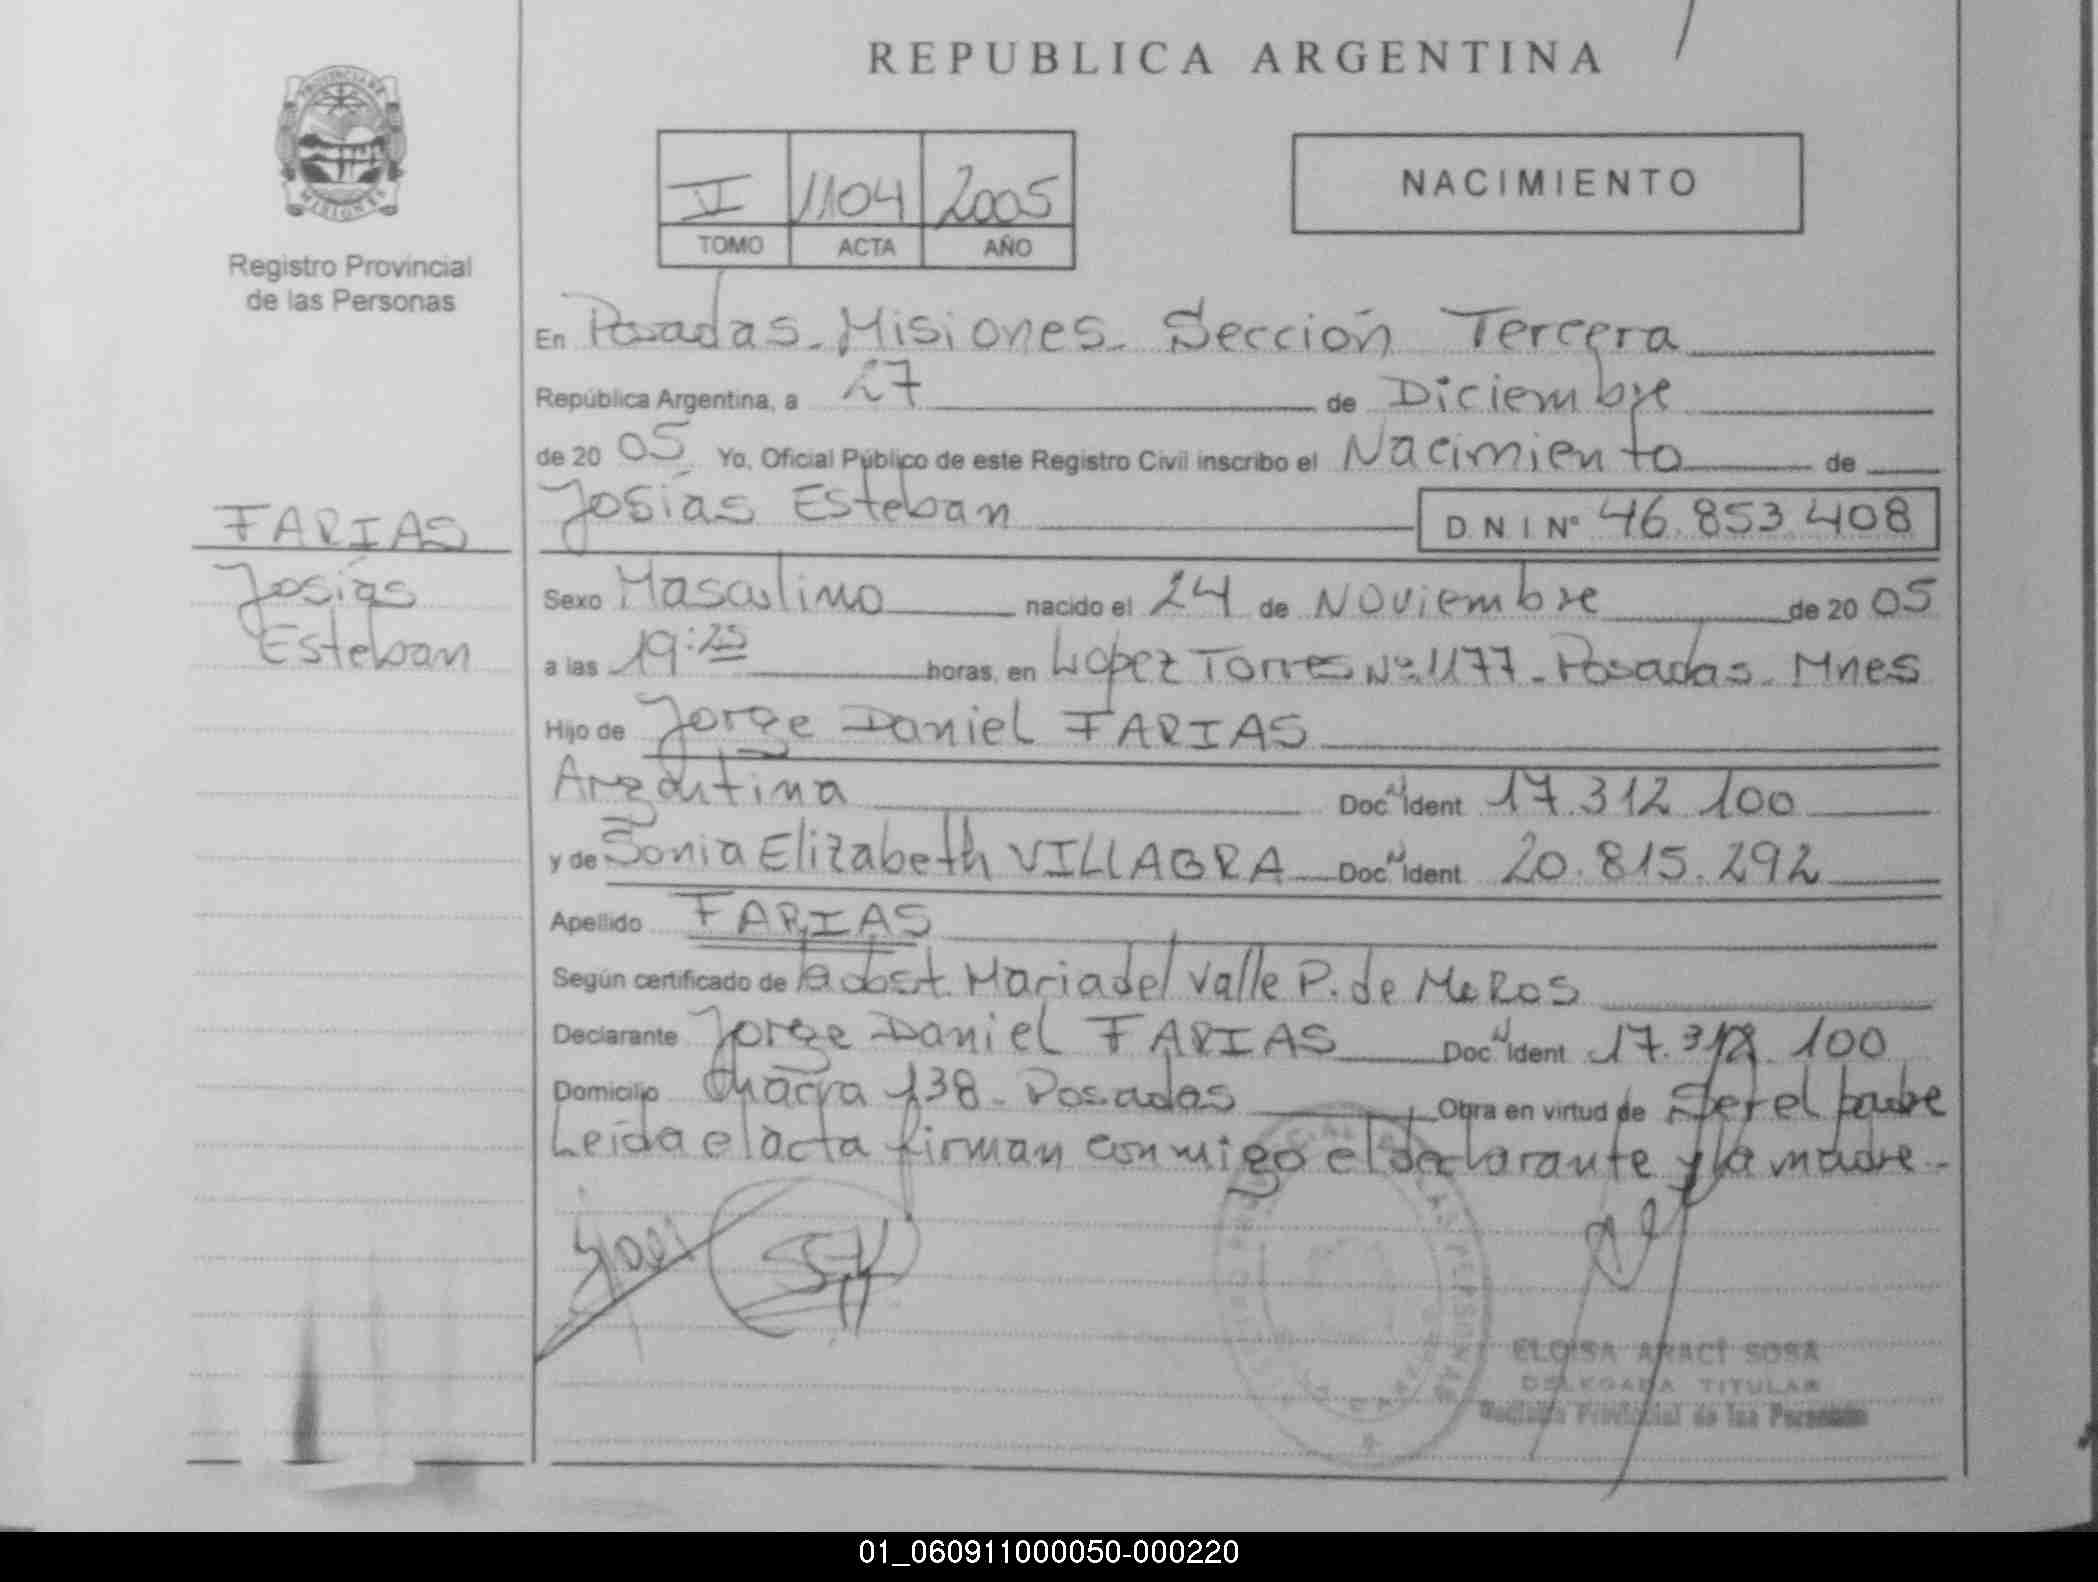 REPUBLICA ARGENTINA
PROVINCIA DE
MISIONES
Registro Provincial
de las Personas
V 1104 2005
TOMO ACTA AÑO
NACIMIENTO
En Posadas - Misiones - Sección Tercera
República Argentina, a 27 de Diciembre
de 20 05 Yo, Oficial Público de este Registro Civil inscribo el Nacimiento de
FARIAS
Josías
Esteban
Josías Esteban D.N.I Nº 46.853.408
Sexo Masculino nacido el 24 de Noviembre de 20 05
a las 19:25 horas, en López Torres Nº 1177 - Posadas - Mnes
Hijo de Jorge Daniel FARIAS
Argentina Doc. Ident 17.312.100
y de Sonia Elizabeth VILLAGRA Doc. Ident 20.815.292
Apellido FARIAS
Según certificado de la obst. Maria del Valle P. de
Declarante Jorge Daniel FARIAS Doc. Ident 17.312.100
Domicilio Chacra 138 - Posadas Obra en virtud de Ser el padre
Leída el acta firman conmigo el declarante y la madre -
ELOISA ARACI SOSA
DELEGADA TITULAR
Provincial de las Personas
01_060911000050-000220